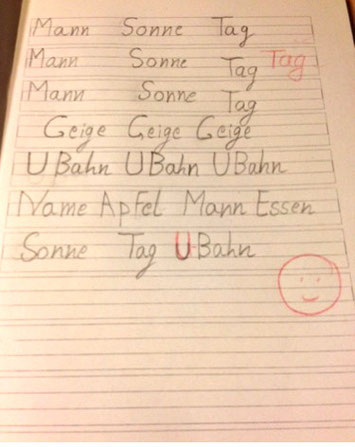 Mann Sonne Tag
Mann Sonne Tag Tag
Mann Sonne Tag
Geige Geige Geige
U Bahn U Bahn U Bahn
Name Apfel Mann Essen
Sonne Tag U-Bahn